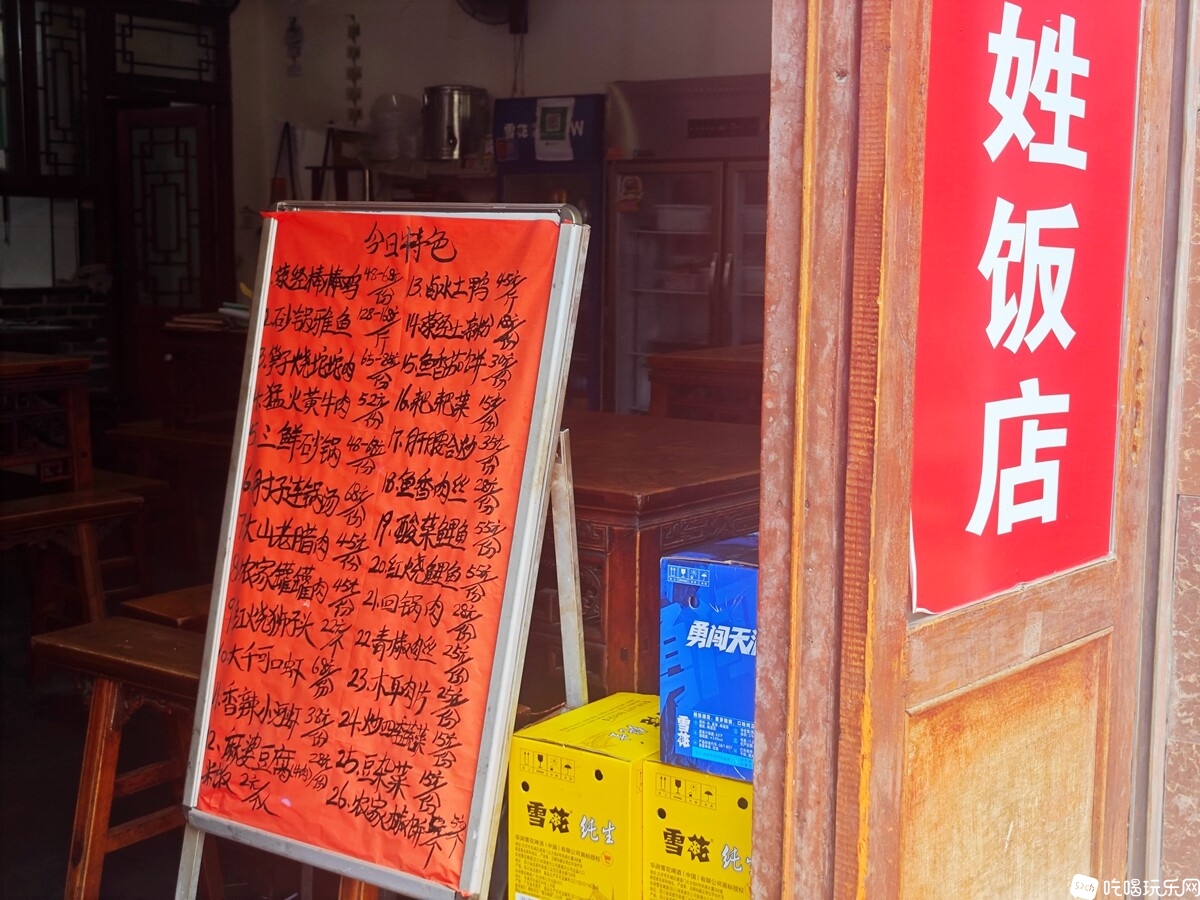 今日特色
荥经棒棒鸡 48-68元/份
2.砂锅雅鱼 128-168元/斤
3.笋子烧坨坨肉 65-38元/份
4.猛火黄牛肉 52元/份
5.三鲜砂锅 48-68元/份
6.肘子连锅汤 68元/份
7.大山老腊肉 45元/份
8.农家罐罐肉 45元/份
9.红烧狮子头 22元/个
10.大千可口虾 68元/份
11.香辣小河虾 38元/份
12.麻婆豆腐(牛肉) 28元/份
米饭 2元/人
13.卤水土鸭 45元/斤
14.荥经土凉粉 18元/份
15.鱼香茄饼 30元/份
16.粑粑菜 15元/份
17.肝腰合炒 35元/份
18.鱼香肉丝 28元/份
19.酸菜鲤鱼 55元/份
20.红烧鲤鱼 55元/份
21.回锅肉 28元/份
22.青椒肉丝 25元/份
23.木耳肉片 25元/份
24.炒四季蔬菜 15元/份
25.豆杂菜 15元/份
26.农家 5元/个
姓饭店
雪花
勇闯天
雪花
雪花 纯生
雪花 纯
52ch 吃喝玩乐网